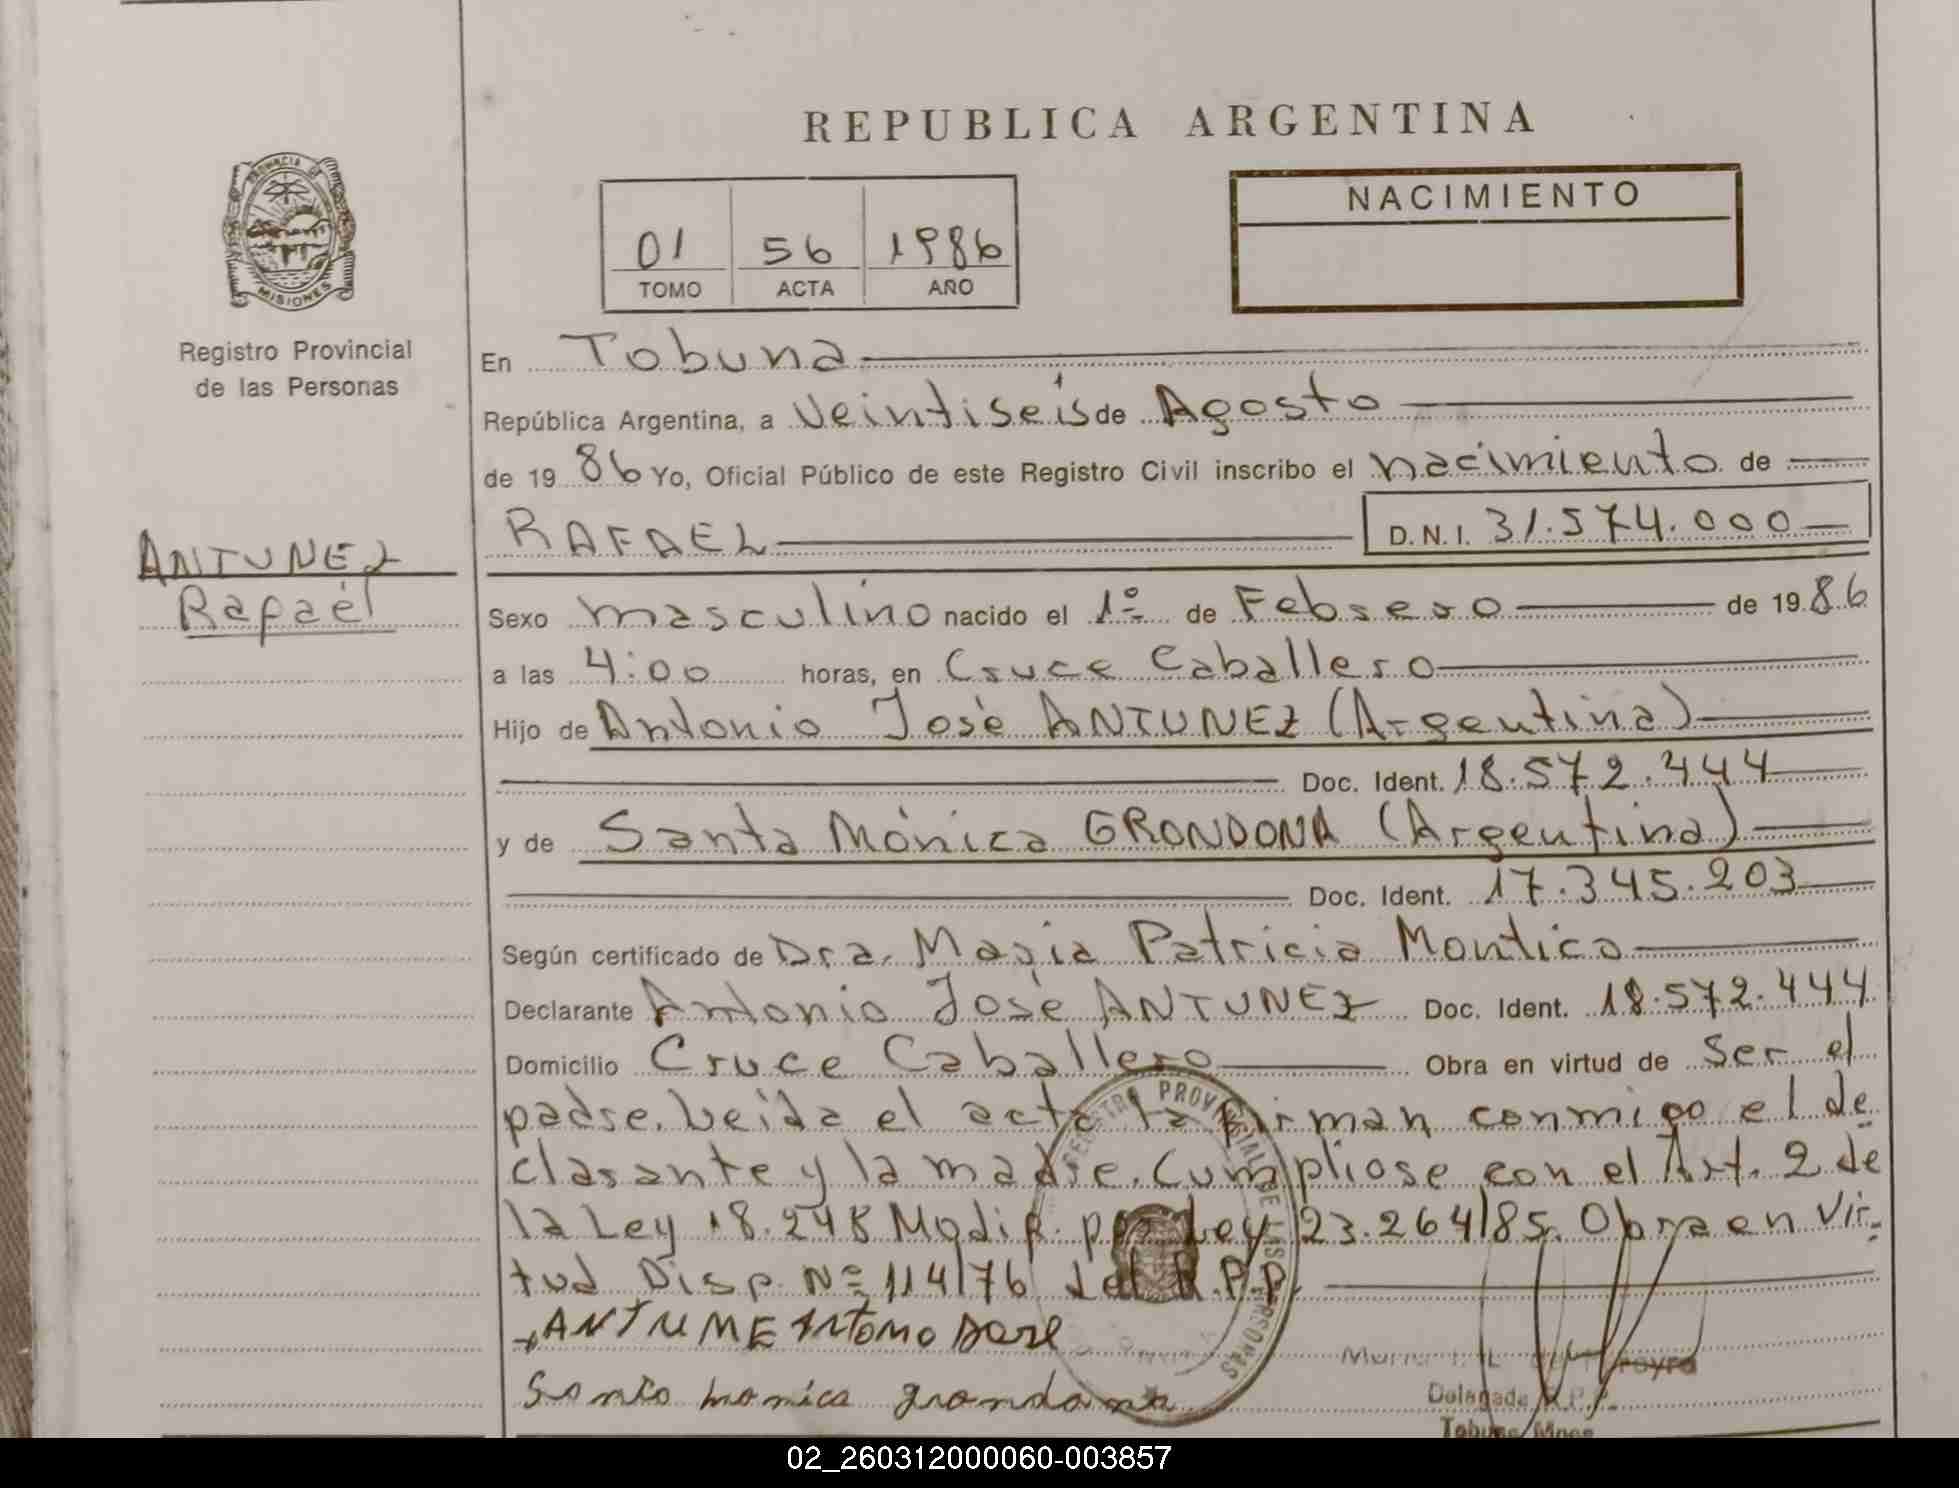 REPUBLICA ARGENTINA
PROVINCIA DE
MISIONES
NACIMIENTO
01 56 1986
TOMO ACTA AÑO
Registro Provincial
de las Personas
En Tobuna
República Argentina, a Veintiseís de Agosto
de 19 86 Yo, Oficial Público de este Registro Civil inscribo el nacimiento de
RAFAEL D.N.I. 31.574.000
ANTUNEZ
Rafaél
Sexo masculino nacido el 1º de Febrero de 19 86
a las 4:00 horas, en Cruce Caballero
Hijo de Antonio José ANTUNEZ (Argentina)
Doc. Ident. 18.572.444
y de Santa Mónica GRONDONA (Argentina)
Doc. Ident. 17.345.203
Según certificado de Dra. María Patricia Montico
Declarante Antonio José ANTUNEZ Doc. Ident. 18.572.444
Domicilio Cruce Caballero Obra en virtud de Ser el
padre. Leida el acta la firman conmigo el de
clarante y la madre. Cumpliose con el Art. 2 de
la Ley 18.248 Modif. por Ley 23.264/85. Obra en Vir-
tud Disp. Nº 114/76 del R.P.P.
REGISTRO PROVINCIAL DE LAS PERSONAS
ANTUME Antonio Jose
Santa monica grondona
Delegada R.P.P.
Tobuna Mnes
02_260312000060-003857